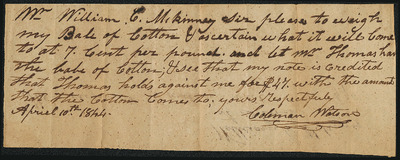 Mr William C. McKinney sir please to weigh
my Bale of Cotton & ascertain what it will Come
to at 7. Cent per pound. and let Mr Thomas have
the bale of Cotton, & see that my note is Credited
that Thomas holds against me of $47. with the amount
that the Cotton Comes to, yours Respectfully
April 10th 1844. Coleman Watson